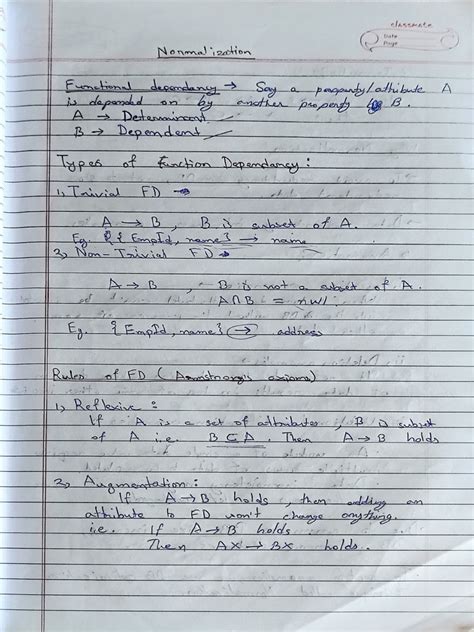 classmate
Date
Page
Normalization
Functional dependancy → Say a property/attribute A
is depended on by another property B.
A → Determinant
B → Dependent
Types of Function Dependancy :
1, Trivial FD →
A → B , B is subset of A.
Eg. { EmpId, name} → name
2, Non-Trivial FD →
A → B , B is not a subset of A.
A∩B = null
Eg. {EmpId, name} → address
Rules of FD (Armstrong's axioms)
1, Reflexive :
If A is a set of attributes, B is subset
of A i.e. B ⊆ A. Then A → B holds
2, Augmentation :
If A → B holds, then adding an
attribute to FD won't change anything.
i.e. If A → B holds
Then AX → BX holds.